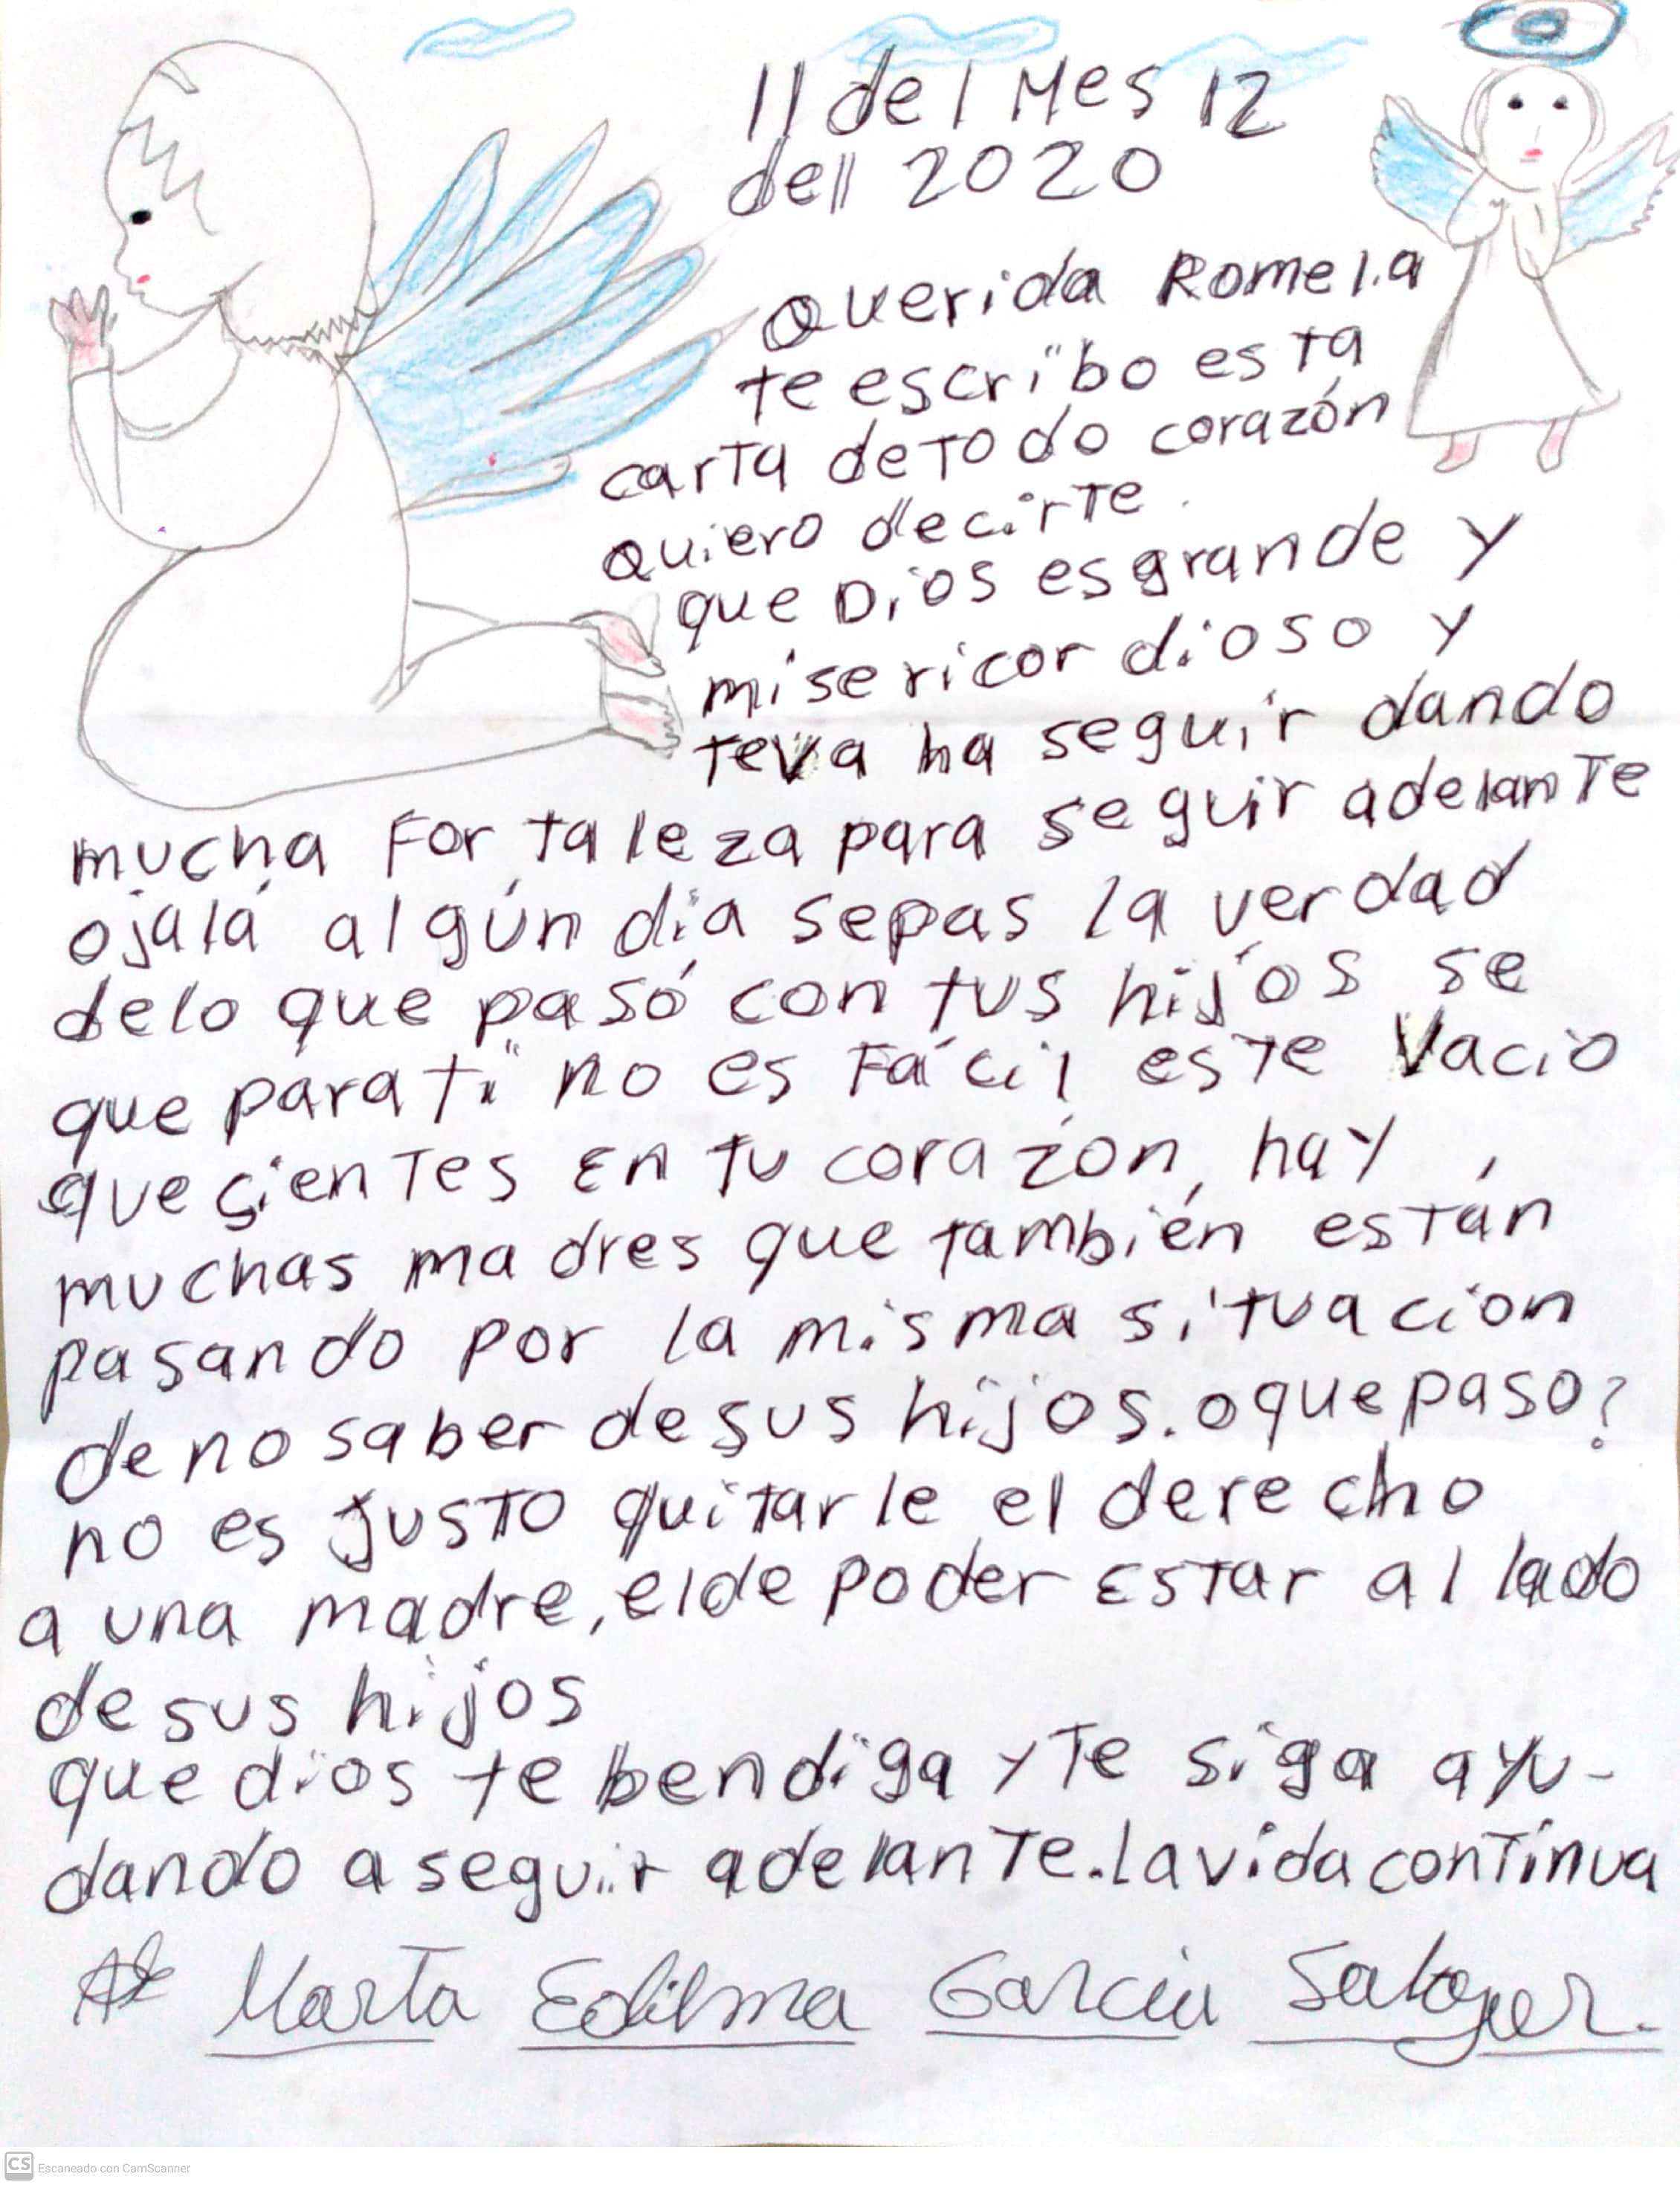 11 del Mes 12
dell 2020
Querida Romelia
te escribo esta
carta de todo corazón
quiero decirte.
que Dios es grande y
misericordioso y
te va ha seguir dando
mucha Fortaleza para seguir adelante
ojalá algún día sepas la verdad
de lo que pasó con tus hijos se
que para ti no es Fácil este vacio
que sientes En tu corazón, hay
muchas madres que también están
pasando por la misma situación
de no saber de sus hijos. o que paso?
no es justo quitarle el derecho
a una madre, el de poder Estar al lado
de sus hijos
que dios te bendiga y te siga ayu-
dando a seguir adelante. la vida continua
Marta Edilma García
CS Escaneado con CamScanner